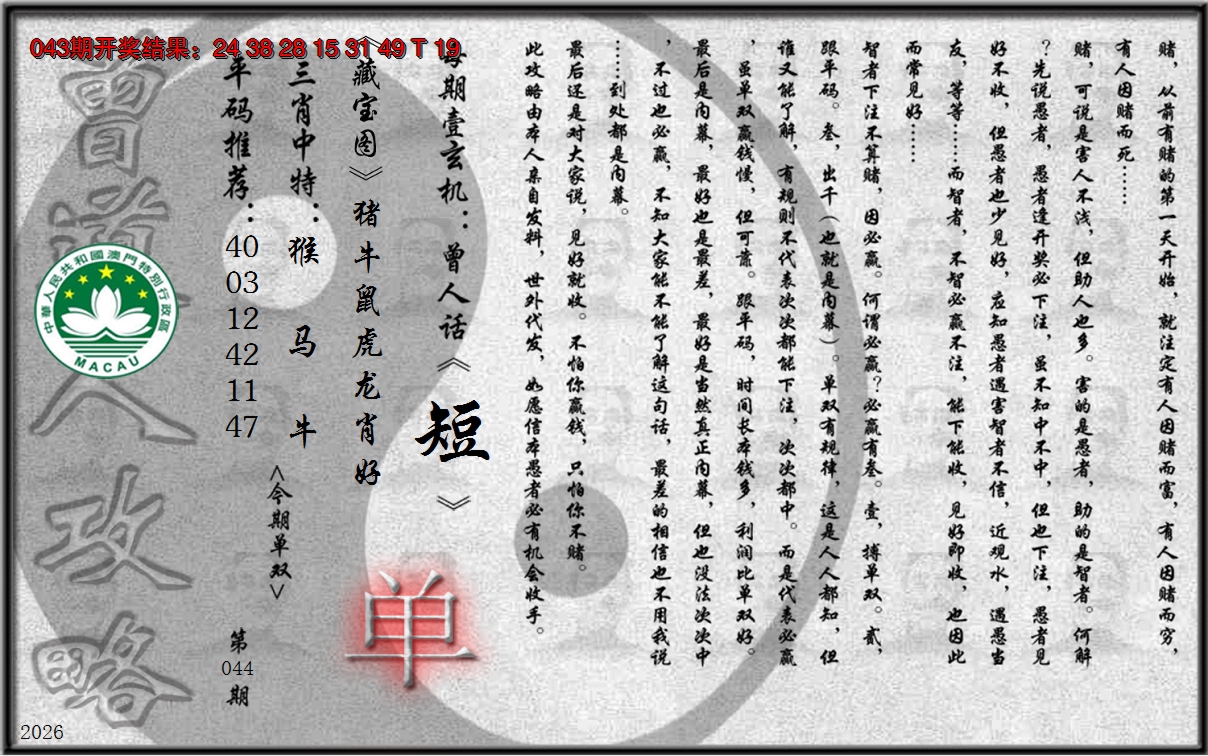 043期开奖结果：24 38 28 15 31 49 T 19
赌，从前有赌的第一天开始，就注定有人因赌而富，有人因赌而穷，
有人因赌而死……
赌，可说是害人不浅，但助人也多。害的是愚者，助的是智者。何解
？先说愚者，愚者逢开奖必下注，虽不知中不中，但也下注，愚者见
好不收，但愚者也少见好，应知愚者遇害智者不信，近观水，遇愚当
友，等等……而智者，不智必赢不注，能下能收，见好即收，也因此
而常见好……
智者下注不算赌，因必赢。何谓必赢？必赢有叁。壹，搏单双。贰，
跟平码。叁，出千（也就是内幕）。单双有规律，这是人人都知，但
谁又能了解，有规则不代表次次都能下注，次次都中。而是代表必赢
，虽单双赢钱慢，但可靠。跟平码，时间长本钱多，利润比单双好。
最后是内幕，最好也是最差，最好是当然真正内幕，但也没法次次中
，不过也必赢，不知大家能不能了解这句话，最差的相信也不用我说
……到处都是内幕。
最后还是对大家说，见好就收。不怕你赢钱，只怕你不赌。
此攻略由本人亲自发料，世外代发，如愿信本愚者必有机会收手。
每期壹玄机：曾人话《短》
《藏宝图》猪牛鼠虎龙肖好
三肖中特：猴 马 牛
平码推荐：40 03 12 42 11 47
<今期单双>
单
第044期
曾道人攻略
中華人民共和國澳門特別行政區
MACAU
2026